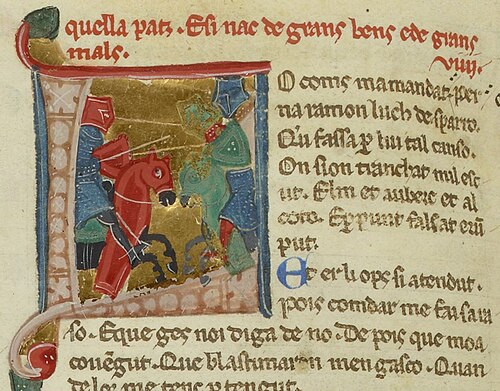 quella patz. Esi nac de grans bens ede grans
mals. viiij.
LO coms ma mandat. per
na ramon luch desparro.
Qu fassa p lui tal canso.
On sion trianchat mil esc
ut. Elm et auberc et al
coto. Eperpunt falsat erũ
put.
Et er li ops si atendut.
pois comdar me fai sa ra
so. Eque ges noi diga de no. De pois que moa
couẽgut. Que blastimaran men gasco. Quan
de lor me tens p tengut.